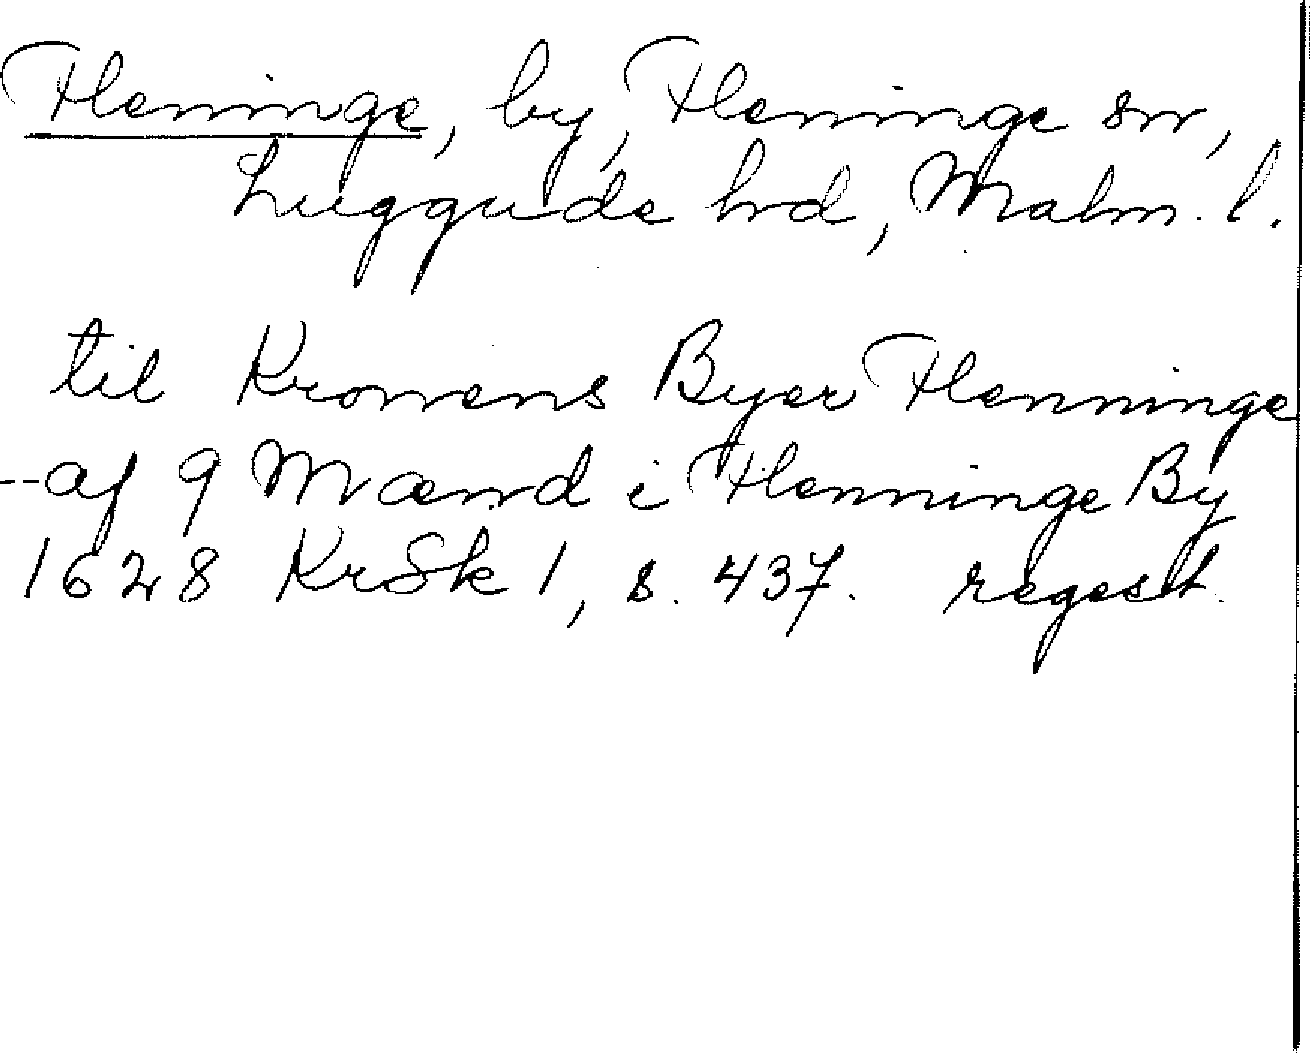 Fleninge, by, Fleninge sn,
Luggude hrd, Malm. l.
til Kronens Byer Flenninge
--af 9 Mænd i Flenninge By
1628 KrSk 1, s. 437. regest.